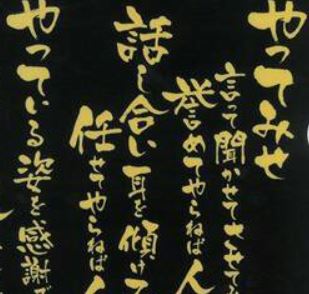 やってみせ
言って聞かせてさせてみ
誉めてやらねば人
話し合い
耳を傾け
任せてやらねば人
やっている
姿を感謝で